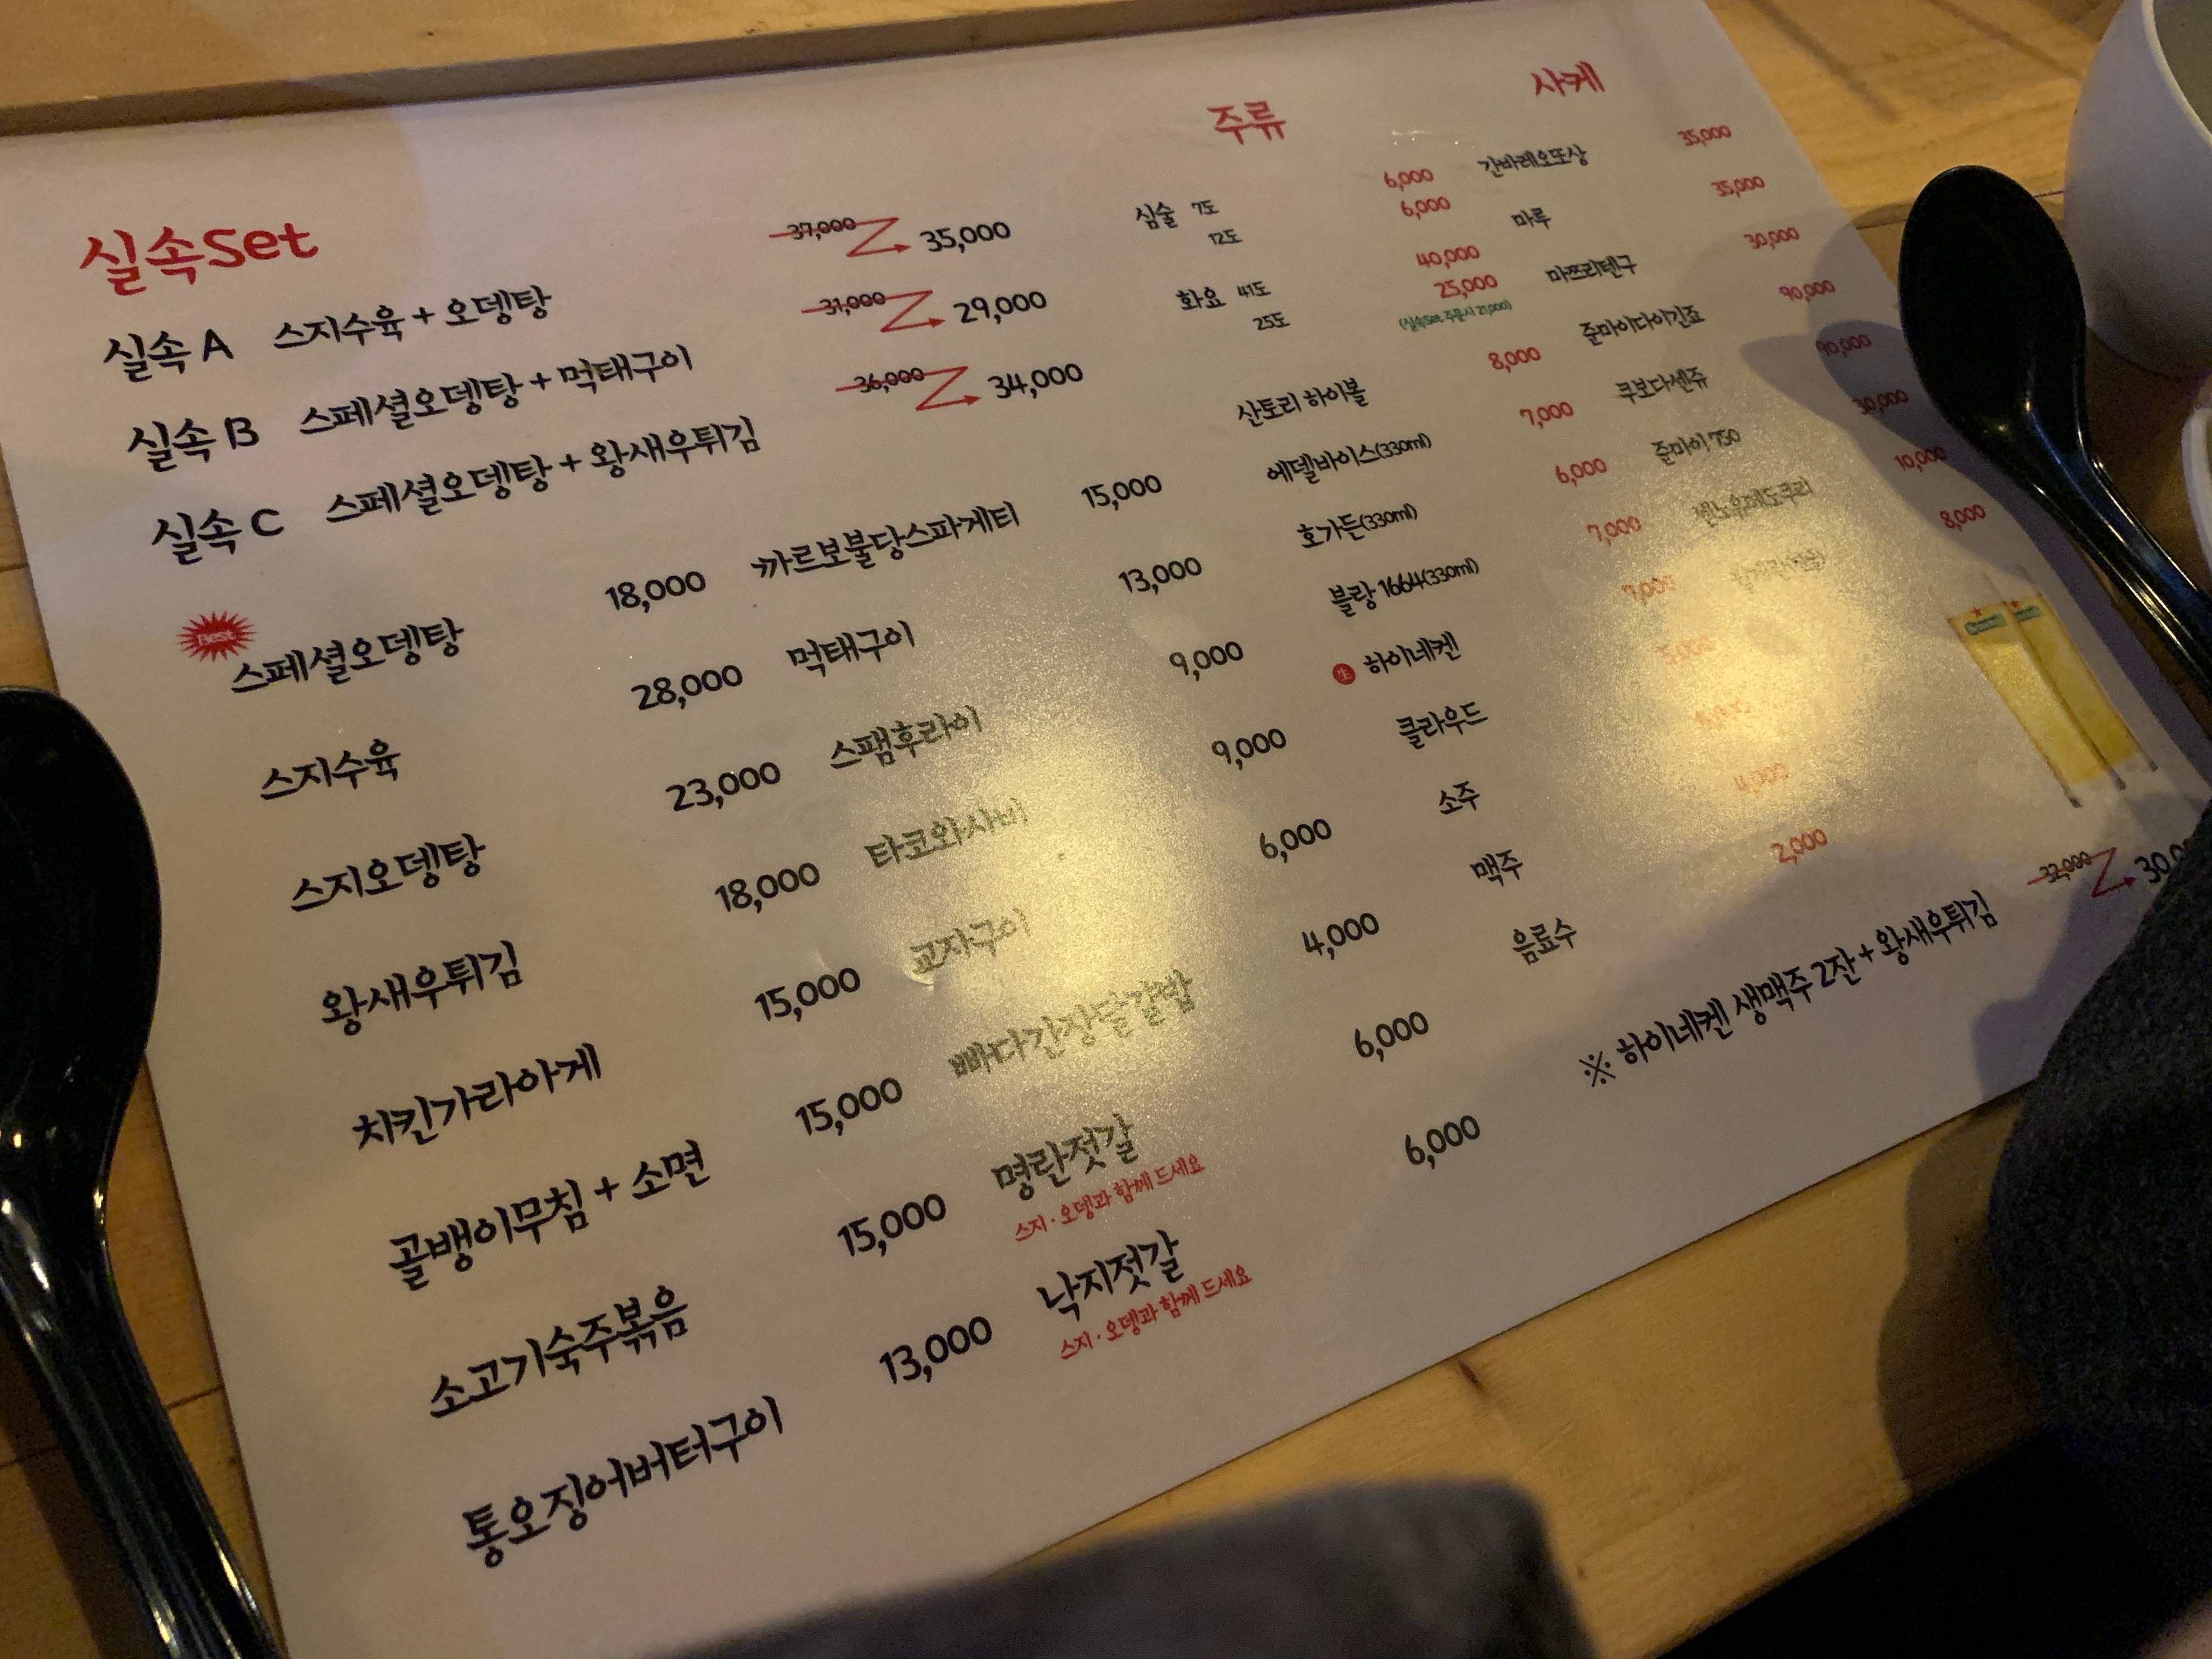 실속Set
실속 A 스지수육 + 오뎅탕 37,000 35,000
실속 B 스페셜오뎅탕 + 먹태구이 31,000 29,000
실속 C 스페셜오뎅탕 + 왕새우튀김 36,000 34,000
Best
스페셜오뎅탕 18,000
스지수육 28,000
스지오뎅탕 23,000
왕새우튀김 18,000
치킨가라아게 15,000
골뱅이무침 + 소면 15,000
소고기숙주볶음 15,000
통오징어버터구이 13,000
까르보불닭스파게티 15,000
먹태구이 13,000
스팸후라이 9,000
타코와사비 9,000
교자구이 6,000
빠다간장달걀밥 4,000
명란젓갈 6,000
스지·오뎅과 함께 드세요
낙지젓갈 6,000
스지·오뎅과 함께 드세요
주류
심술 7도 6,000
12도 6,000
화요 41도 40,000
25도 25,000
(실속Set 주문시 21,000)
산토리 하이볼 8,000
에델바이스(330ml) 7,000
호가든(330ml) 6,000
블랑 1664(330ml) 7,000
生 하이네켄 7,000
클라우드
소주
맥주 4,000
음료수 2,000
사케
간바레오또상 35,000
마루 35,000
마쯔리텐구 30,000
준마이다이긴죠 90,000
쿠보다센쥬 90,000
준마이 750 30,000
10,000
8,000
※ 하이네켄 생맥주 2잔 + 왕새우튀김 32,000